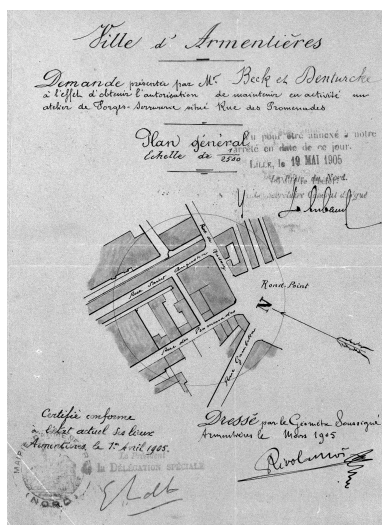 Ville d'Armentières
Demande présentée par Mr. Beck et Denturck
à l'effet d'obtenir l'autorisation de maintenir en activité un
atelier de Forges-Serrurerie situé Rue des Promenades
Plan général
Echelle de 2500
Vu pour être annexé à notre
arrêté en date de ce jour.
LILLE, le 19 MAI 1905
du Nord.
Rue
Rue Saint
Rond-Point
N
Rue des Promenades
Rue
Certifié conforme
à l'état actuel des lieux
Armentières, le 1er Avril 1905.
la DÉLÉGATION SPÉCIALE
(NORD)
Dressé par le Géomètre Soussigné
Armentières le Mars 1905